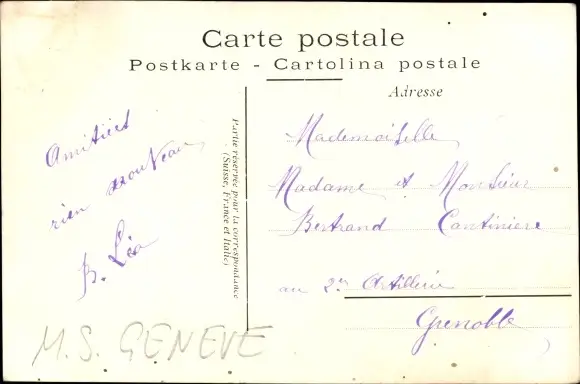 Carte postale
Postkarte - Cartolina postale
Adresse
Partie réservée pour la correspondance
(Suisse, France et Italie)
Amitiés
rien nouveau
B. Léa
Mademoiselle
Madame et Monsieur
Bertrand Cantinière
au 2e Artillerie
Grenoble
M.S. GENEVE